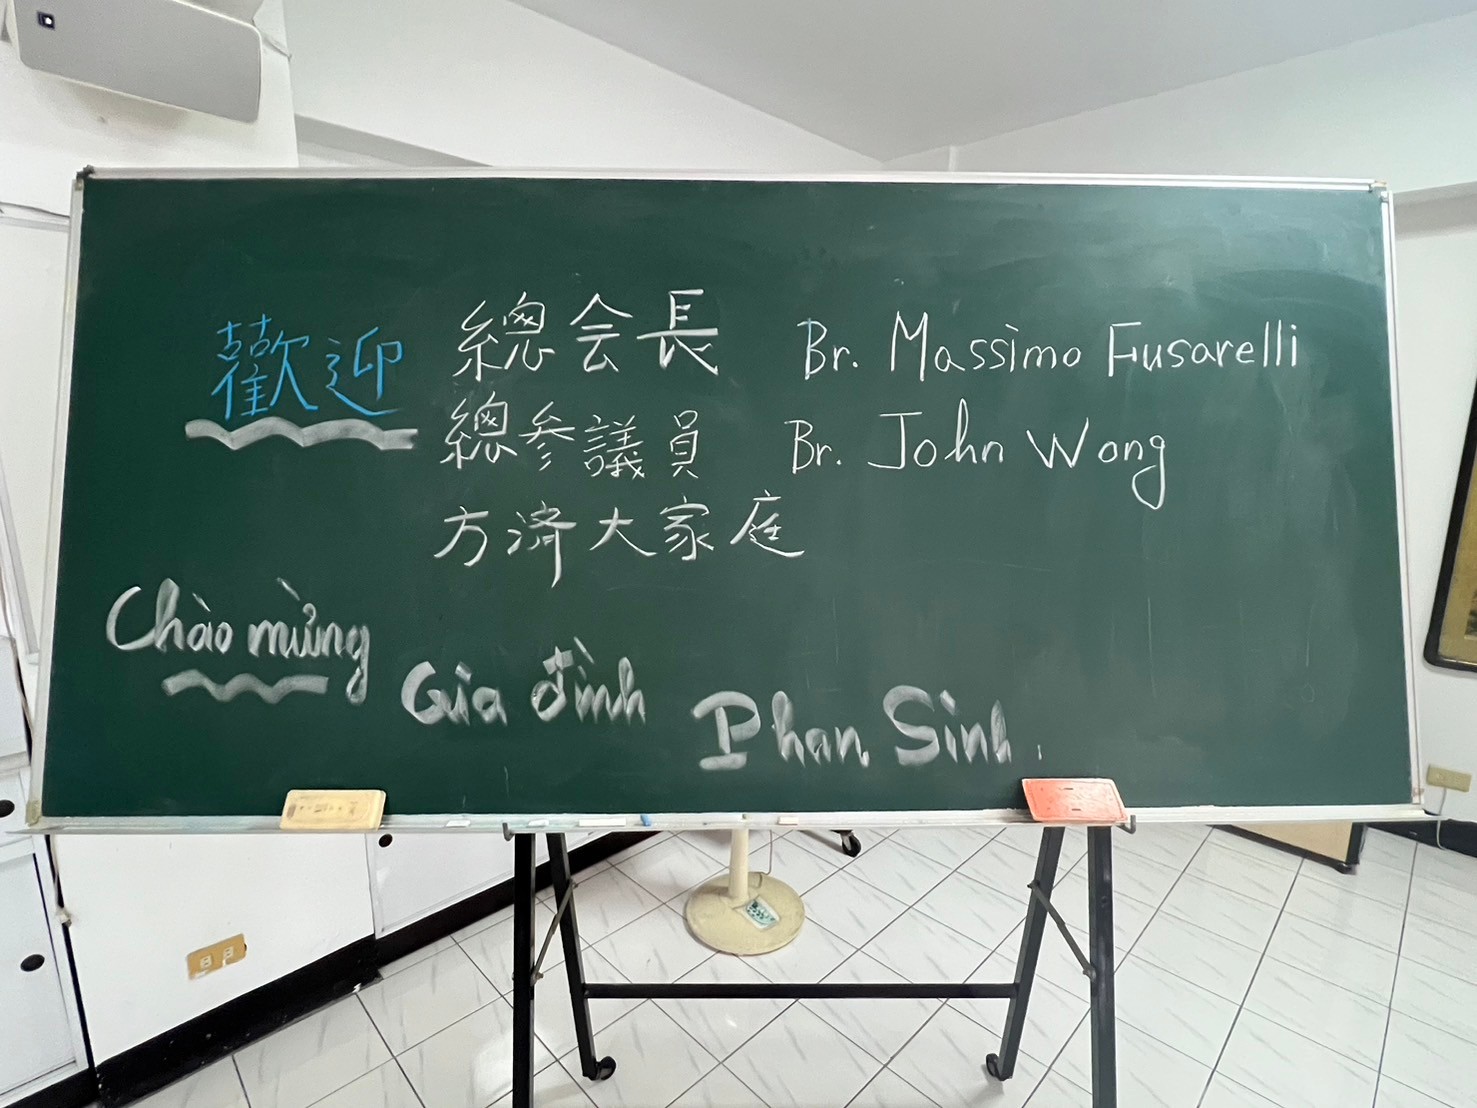 歡迎 總会長 Br. Massimo Fusarelli
總参議員 Br. John Wong
方済大家庭
Chào mừng
Gia đình
Phan Sinh.